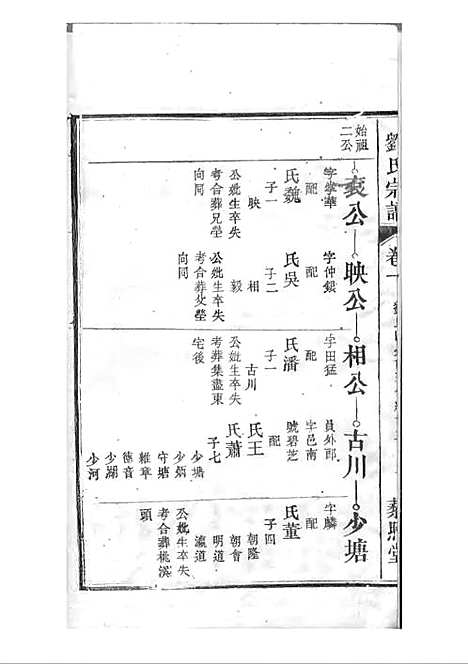 劉氏宗譜
卷一
藜照堂
始祖
二公
袁公
字學華
配
氏魏
子一
映
公妣生卒失
考合葬兄塋
向同
映公
字仲銀
配
氏吳
子二
相
毅
公妣生卒失
考合葬父塋
向同
相公
字田猛
配
氏潘
子一
古川
公妣生卒失
考葬集盡東
宅後
古川
員外郎
字邑南
號碧芝
配
氏王
氏蕭
子七
少塘
少炳
守塘
雜章
德音
少湖
少河
少塘
字麟
配
氏董
子四
朝隆
朝會
明道
瀛道
公妣生卒失
考合葬桃溪
頭